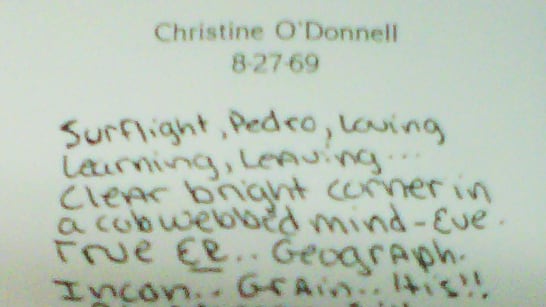 Christine O'Donnell
8-27-69
Surflight, Pedro, Loving
Learning, Leaving...
Clear bright corner in
a cobwebbed mind-Eve.
True ER.. Geograph.
Incan.. Grain.. Itis!!